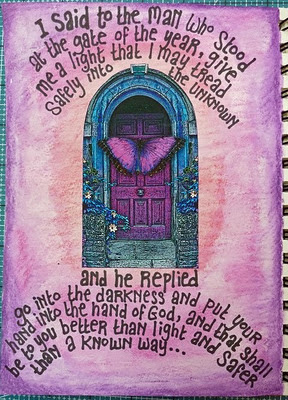 I Said to the Man Who Stood
at the gate of the year, give
me a light that I may tread
Safely into the unknown
and he Replied
go into the darkness and put your
hand into the hand of God, and that shall
be to you better than light and Safer
than a known way...